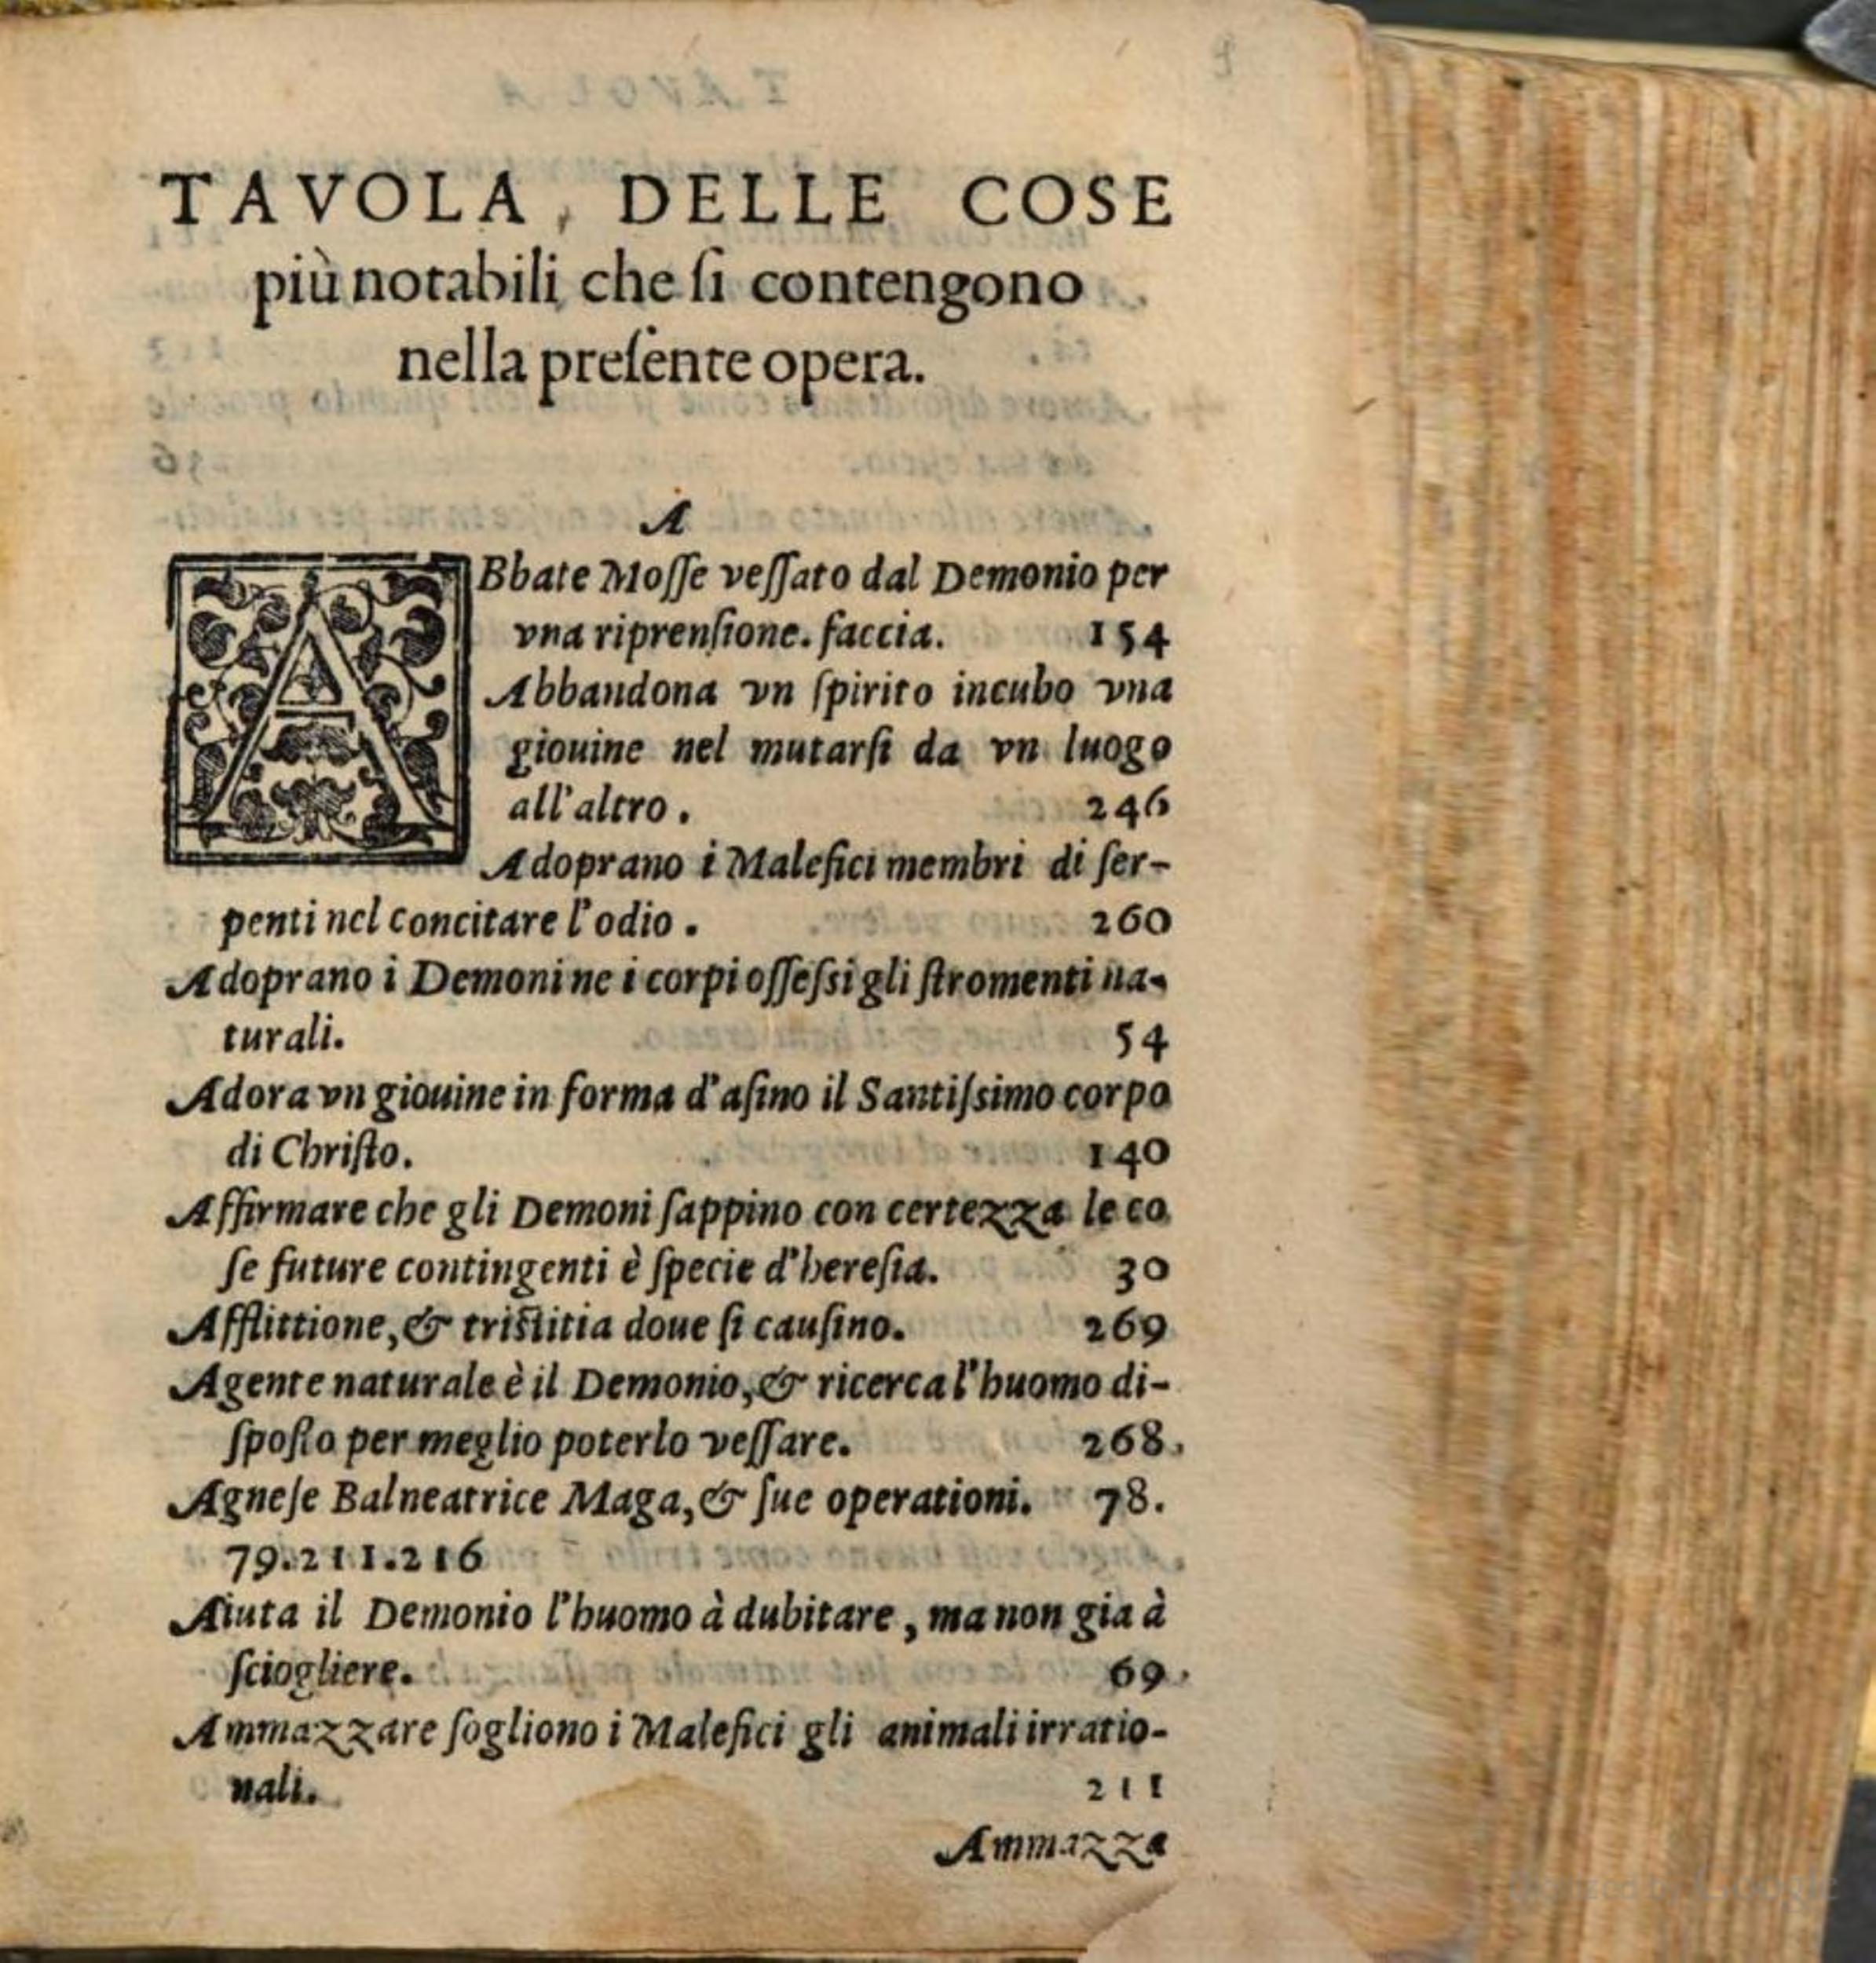 TAVOLA, DELLE COSE
più notabili, che ſi contengono
nella preſente opera.
A
ABbate Moſſe veſſato dal Demonio per
vna riprenſione. faccia. 154
Abbandona vn ſpirito incubo vna
giouine nel mutarſi da vn luogo
all'altro. 246
Adoprano i Malefici membri di ſer-
penti nel concitare l'odio. 260
Adoprano i Demoni ne i corpi oſſeſsi gli ſtromenti na-
turali. 54
Adora vn giouine in forma d'aſino il Santiſsimo corpo
di Chriſto. 140
Affirmare che gli Demoni ſappino con certezza le co
ſe future contingenti è ſpecie d'hereſia. 30
Afflittione, & triſtitia doue ſi cauſino. 269
Agente naturale è il Demonio, & ricerca l'huomo di-
ſpoſto per meglio poterlo veſſare. 268.
Agneſe Balneatrice Maga, & ſue operationi. 78.
79.211.216
Aiuta il Demonio l'huomo à dubitare, ma non gia à
ſciogliere. 69.
Ammazzare ſogliono i Malefici gli animali irratio-
nali. 211
Ammazza